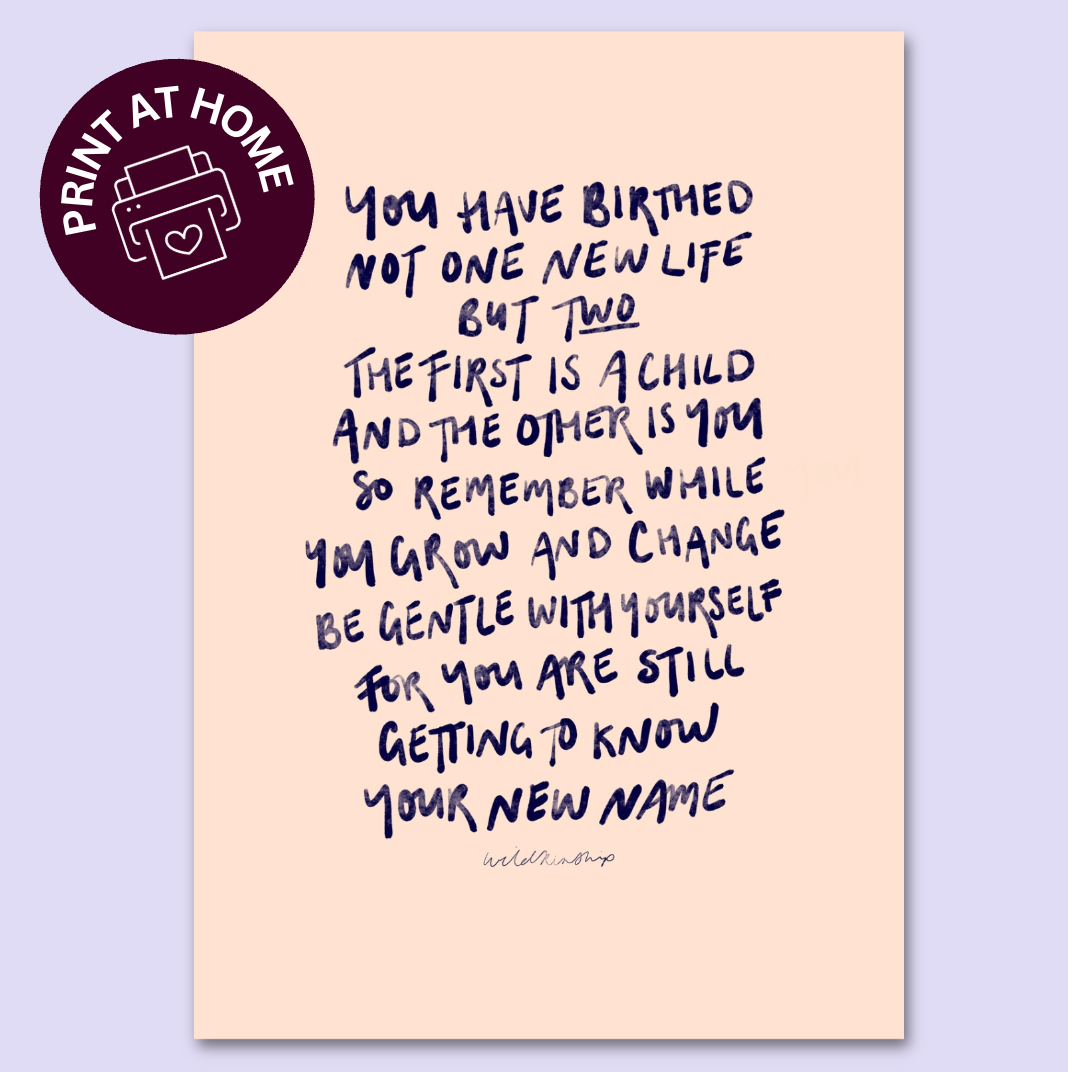 PRINT AT HOME
YOU HAVE BIRTHED
NOT ONE NEW LIFE
BUT TWO
THE FIRST IS A CHILD
AND THE OTHER IS YOU
SO REMEMBER WHILE
YOU GROW AND CHANGE
BE GENTLE WITH YOURSELF
FOR YOU ARE STILL
GETTING TO KNOW
YOUR NEW NAME
wildkinship